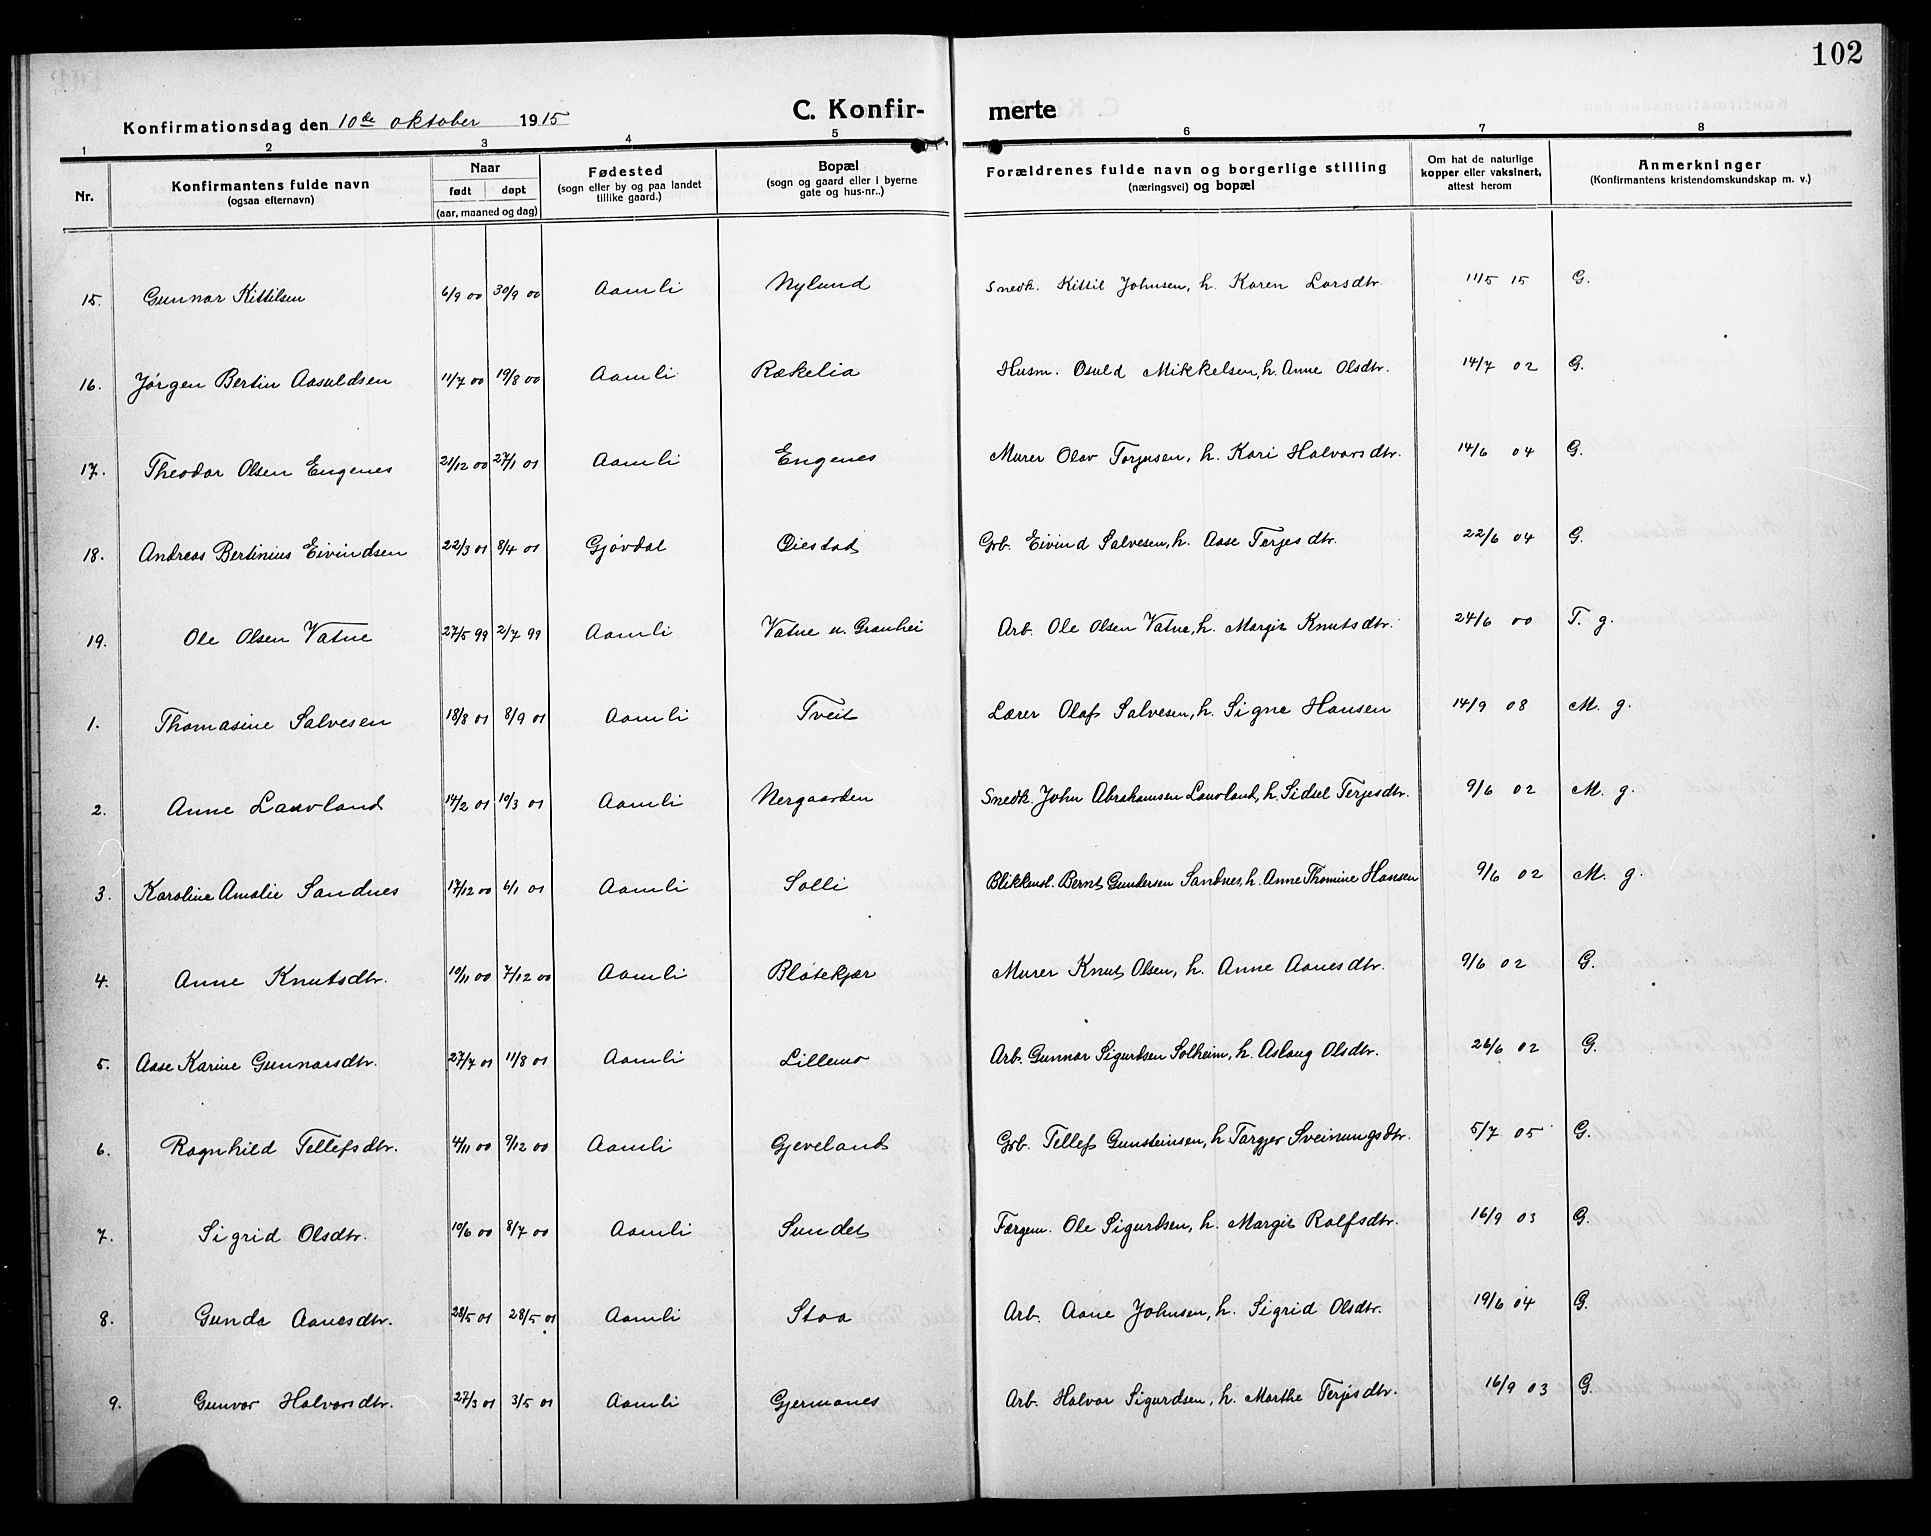 102
Konfirmationsdag den 10de oktober 1915 C. Konfir- merte
1 2 3 4 5 6 7 8
Nr. Konfirmantens fulde navn (ogsaa efternavn) Naar født døpt (aar, maaned og dag) Fødested (sogn eller by og paa landet tillike gaard.) Bopæl (sogn og gaard eller i byerne gate og hus-nr..) Forældrenes fulde navn og borgerlige stilling (næringsvei) og bopæl Om hat de naturlige kopper eller vaksinert, attest herom Anmerkninger (Konfirmantens kristendomskundskap m. v.)
15. Gunnar Kittilsen 6/9 00 30/9 00 Aamli Nylund Snedk. Kittil Johnsen, h. Karen Larsdtr. 11/5 15 G.
16. Jørgen Bertin Aasuldsen 11/7 00 19/8 00 Aamli Rækelia Husm. Osuld Mikkelsen, h. Anne Olsdtr. 14/7 02 G.
17. Theodor Olsen Engenes 21/12 00 27/1 01 Aamli Engenes Murer Olav Torjusen, h. Kari Halvorsdtr. 14/6 04 G.
18. Andreas Bertinius Eivindsen 22/3 01 8/4 01 Gjøvdal Øiestad Grb. Eivind Salvesen, h. Aase Terjesdtr. 22/6 04 G.
19. Ole Olsen Vatne 27/5 99 2/7 99 Aamli Vatne u. Granhei Arb. Ole Olsen Vatne, h. Margit Knutsdtr. 24/6 00 T. g.
1. Thomasine Salvesen 18/8 01 8/9 01 Aamli Tveit Lærer Olaf Salvesen, h. Signe Hansen 14/9 08 M. g.
2. Anne Lauvland 14/2 01 10/3 01 Aamli Nergaarden Snedk. John Abrahamsen Lauvland, h. Sidsel Terjesdtr. 9/6 02 M. g.
3. Karoline Amalie Sandnes 17/12 00 6/1 01 Aamli Solli Blikkensl. Bernt Gundersen Sandnes, h. Anne Thomine Hansen 9/6 02 M. g.
4. Anne Knutsdtr. 10/11 00 7/12 00 Aamli Bløtekjær Murer Knut Olsen, h. Anne Aanesdtr. 9/6 02 G.
5. Aase Karine Gunnarsdtr. 27/7 01 11/8 01 Aamli Lillemo Arb. Gunnar Sigurdsen Solheim, h. Aslaug Olsdtr. 26/6 02 G.
6. Ragnhild Tellefsdtr. 4/11 00 9/12 00 Aamli Gjeveland Grb. Tellef Gunsteinsen, h Targjer Sveinungsdtr. 5/7 05 G.
7. Sigrid Olsdtr. 10/6 00 8/7 00 Aamli Sundet Færgem. Ole Sigurdsen, h. Margit Rolfsdtr. 16/9 03 G.
8. Gunda Aanesdtr. 28/5 01 28/5 01 Aamli Stoa Arb. Aane Johnsen, h. Sigrid Olsdtr. 19/6 04 G.
9. Gunvor Halvorsdtr. 27/3 01 3/5 01 Aamli Gjermanes Arb. Halvor Sigurdsen, h. Marthe Terjesdtr. 16/9 03 G.